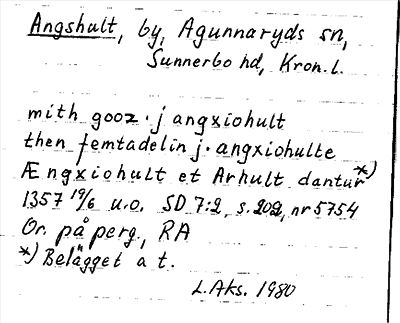 Angshult, by, Agunnaryds sn,
Sunnerbo hd, Kron. l.
mith gooz · j angxiohult
then femtadelin j · angxiohulte
Ængxiohult et Arhult dantur *)
1357 19/6 u.o. SD 7:2, s. 202, nr 5754
Or. på perg., RA
*) Belägget a t.
L. Aks. 1980